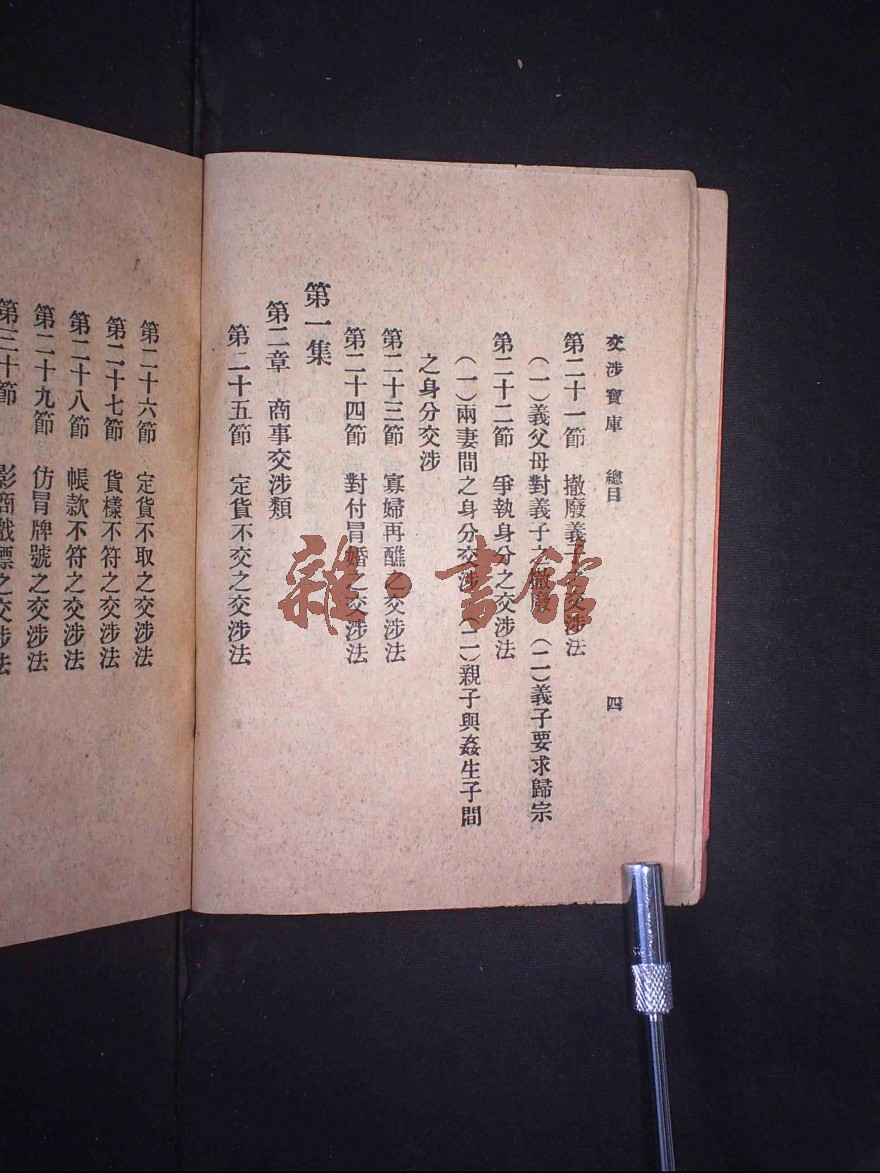 交涉寶庫 總目 四
第二十一節 撤廢義子之交涉法
（一）義父母對義子之撤廢 （二）義子要求歸宗
第二十二節 爭執身分之交涉法
（一）兩妻間之身分交涉 （二）親子與姦生子間
之身分交涉
第二十三節 寡婦再醮之交涉法
第二十四節 對付冒婚之交涉法
第一集
第二章 商事交涉類
第二十五節 定貨不交之交涉法
第二十六節 定貨不取之交涉法
第二十七節 貨樣不符之交涉法
第二十八節 帳款不符之交涉法
第二十九節 仿冒牌號之交涉法
第三十節 影商戲標之交涉法
雜·書館